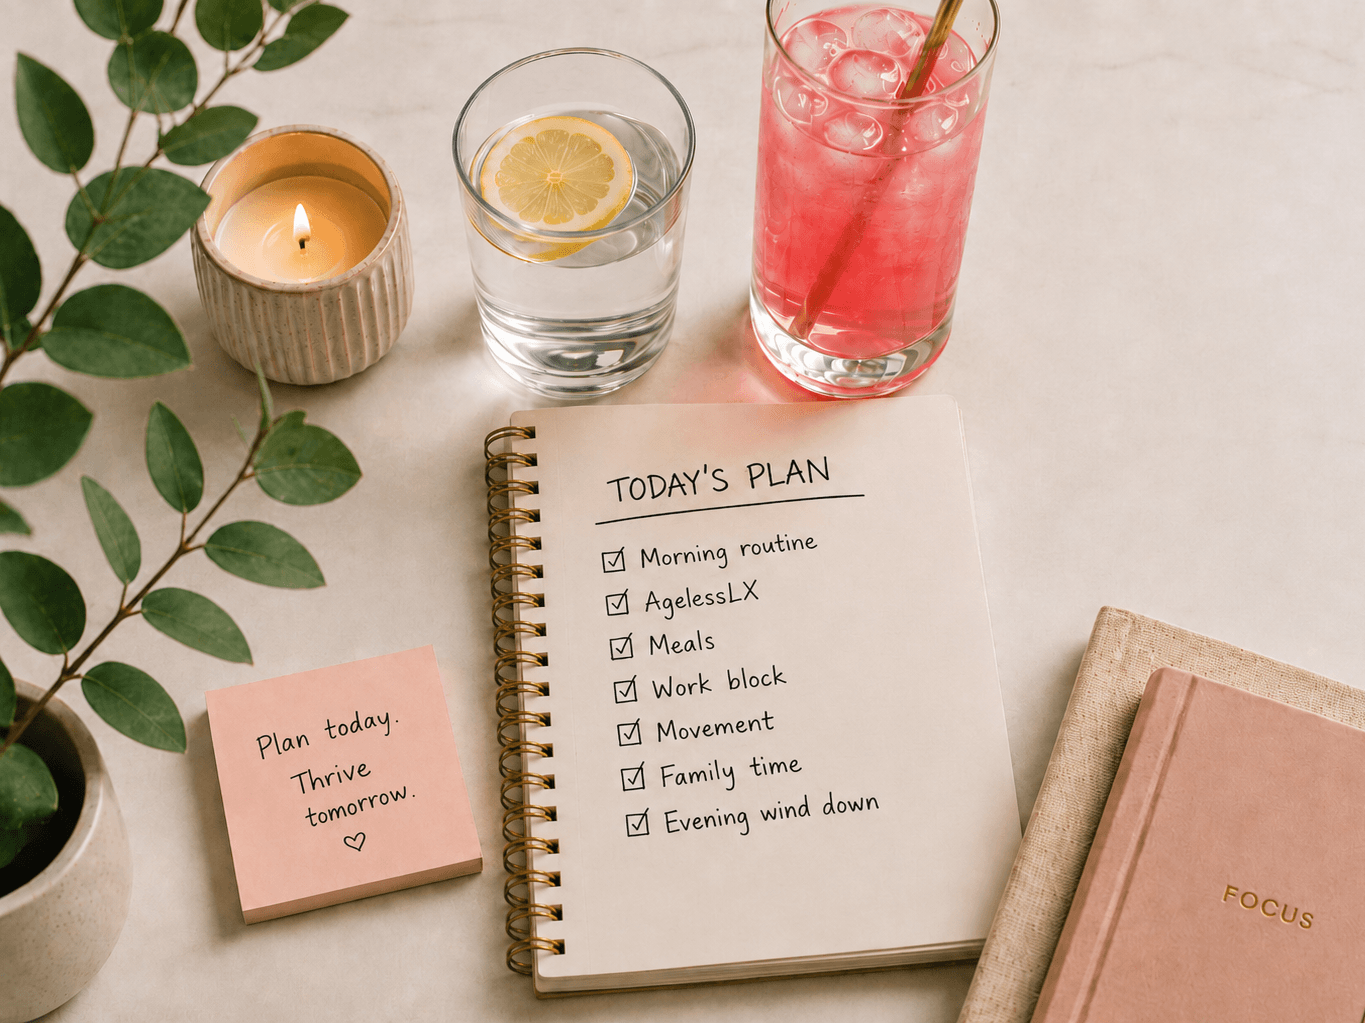 TODAY'S PLAN
☑ Morning routine
☑ AgelessLX
☑ Meals
☑ Work block
☑ Movement
☑ Family time
☑ Evening wind down
Plan today.
Thrive
tomorrow.
♡
FOCUS